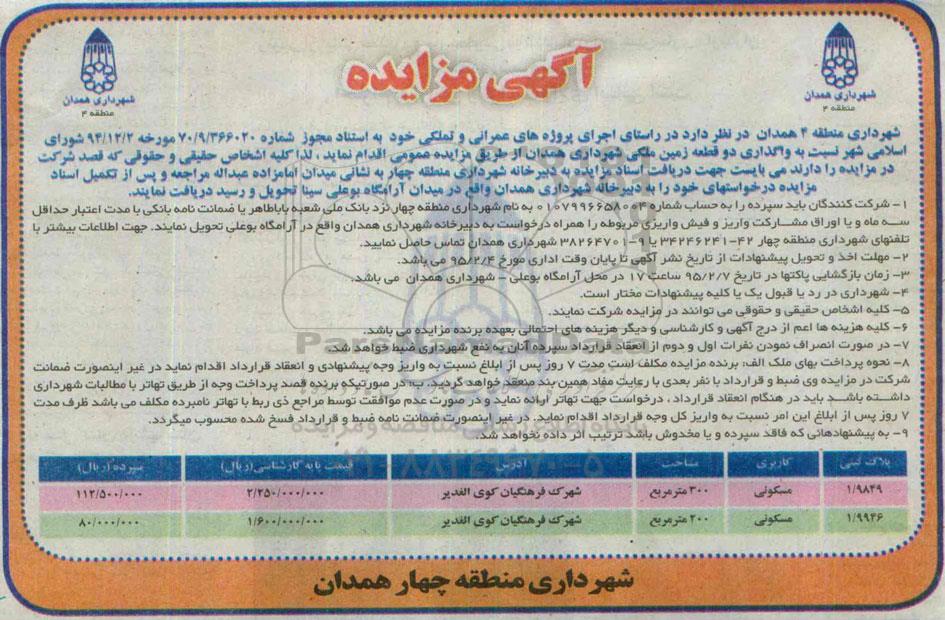 آگهی مزایده
شهرداری همدان
منطقه ۴
شهرداری همدان
منطقه ۴
شهرداری منطقه ۴ همدان در نظر دارد در راستای اجرای پروژه های عمرانی و تملکی خود به استناد مجوز شماره ۷۰/۹/۳۶۶۰۲۰ مورخه ۹۴/۱۲/۲ شورای
اسلامی شهر نسبت به واگذاری دو قطعه زمین ملکی شهرداری همدان از طریق مزایده عمومی اقدام نماید ، لذا کلیه اشخاص حقیقی و حقوقی که قصد شرکت
در مزایده را دارند می بایست جهت دریافت اسناد مزایده به دبیرخانه شهرداری منطقه چهار به نشانی میدان امامزاده عبداله مراجعه و پس از تکمیل اسناد
مزایده درخواستهای خود را به دبیرخانه شهرداری همدان واقع در میدان آرامگاه بوعلی سینا تحویل و رسید دریافت نمایند.
۱- شرکت کنندگان باید سپرده را به حساب شماره ۰۱۰۷۹۹۶۶۵۸۰۰۴ به نام شهرداری منطقه چهار نزد بانک ملی شعبه باباطاهر یا ضمانت نامه بانکی با مدت اعتبار حداقل
سه ماه و یا اوراق مشارکت واریز و فیش واریزی مربوطه را همراه درخواست به دبیرخانه شهرداری همدان واقع در آرامگاه بوعلی تحویل نمایند. جهت اطلاعات بیشتر با
تلفنهای شهرداری منطقه چهار ۴۲-۳۴۲۴۶۲۴۱ یا ۹-۳۸۲۶۴۷۰۱ شهرداری همدان تماس حاصل نمایید.
۲- مهلت اخذ و تحویل پیشنهادات از تاریخ نشر آگهی تا پایان وقت اداری مورخ ۹۵/۲/۴ می باشد.
۳- زمان بازگشایی پاکتها در تاریخ ۹۵/۲/۷ ساعت ۱۷ در محل آرامگاه بوعلی - شهرداری همدان می باشد.
۴- شهرداری در رد یا قبول یک یا کلیه پیشنهادات مختار است.
۵- کلیه اشخاص حقیقی و حقوقی می توانند در مزایده شرکت نمایند.
۶- کلیه هزینه ها اعم از درج آگهی و کارشناسی و دیگر هزینه های احتمالی بعهده برنده مزایده می باشد.
۷- در صورت انصراف نمودن نفرات اول و دوم از انعقاد قرارداد سپرده آنان به نفع شهرداری ضبط خواهد شد.
۸- نحوه پرداخت بهای ملک الف: برنده مزایده مکلف است مدت ۷ روز پس از ابلاغ نسبت به واریز وجه پیشنهادی و انعقاد قرارداد اقدام نماید در غیر اینصورت ضمانت
شرکت در مزایده وی ضبط و قرارداد با نفر بعدی با رعایت مفاد همین بند منعقد خواهد گردید. ب: در صورتیکه برنده قصد پرداخت وجه از طریق تهاتر با مطالبات شهرداری
داشته باشد باید در هنگام انعقاد قرارداد ، درخواست جهت تهاتر ارائه نماید و در صورت عدم موافقت توسط مراجع ذی ربط با تهاتر نامبرده مکلف می باشد ظرف مدت
۷ روز پس از ابلاغ این امر نسبت به واریز کل وجه قرارداد اقدام نماید. در غیر اینصورت ضمانت نامه ضبط و قرارداد فسخ شده محسوب میگردد.
۹- به پیشنهادهائی که فاقد سپرده و یا مخدوش باشد ترتیب اثر داده نخواهد شد.
پلاک ثبتی کاربری مساحت آدرس قیمت پایه کارشناسی(ریال) سپرده (ریال)
۱/۹۸۴۹ مسکونی ۳۰۰ مترمربع شهرک فرهنگیان کوی الغدیر ۲/۲۵۰/۰۰۰/۰۰۰ ۱۱۲/۵۰۰/۰۰۰
۱/۹۹۴۶ مسکونی ۲۰۰ مترمربع شهرک فرهنگیان کوی الغدیر ۱/۶۰۰/۰۰۰/۰۰۰ ۸۰/۰۰۰/۰۰۰
شهرداری منطقه چهار همدان